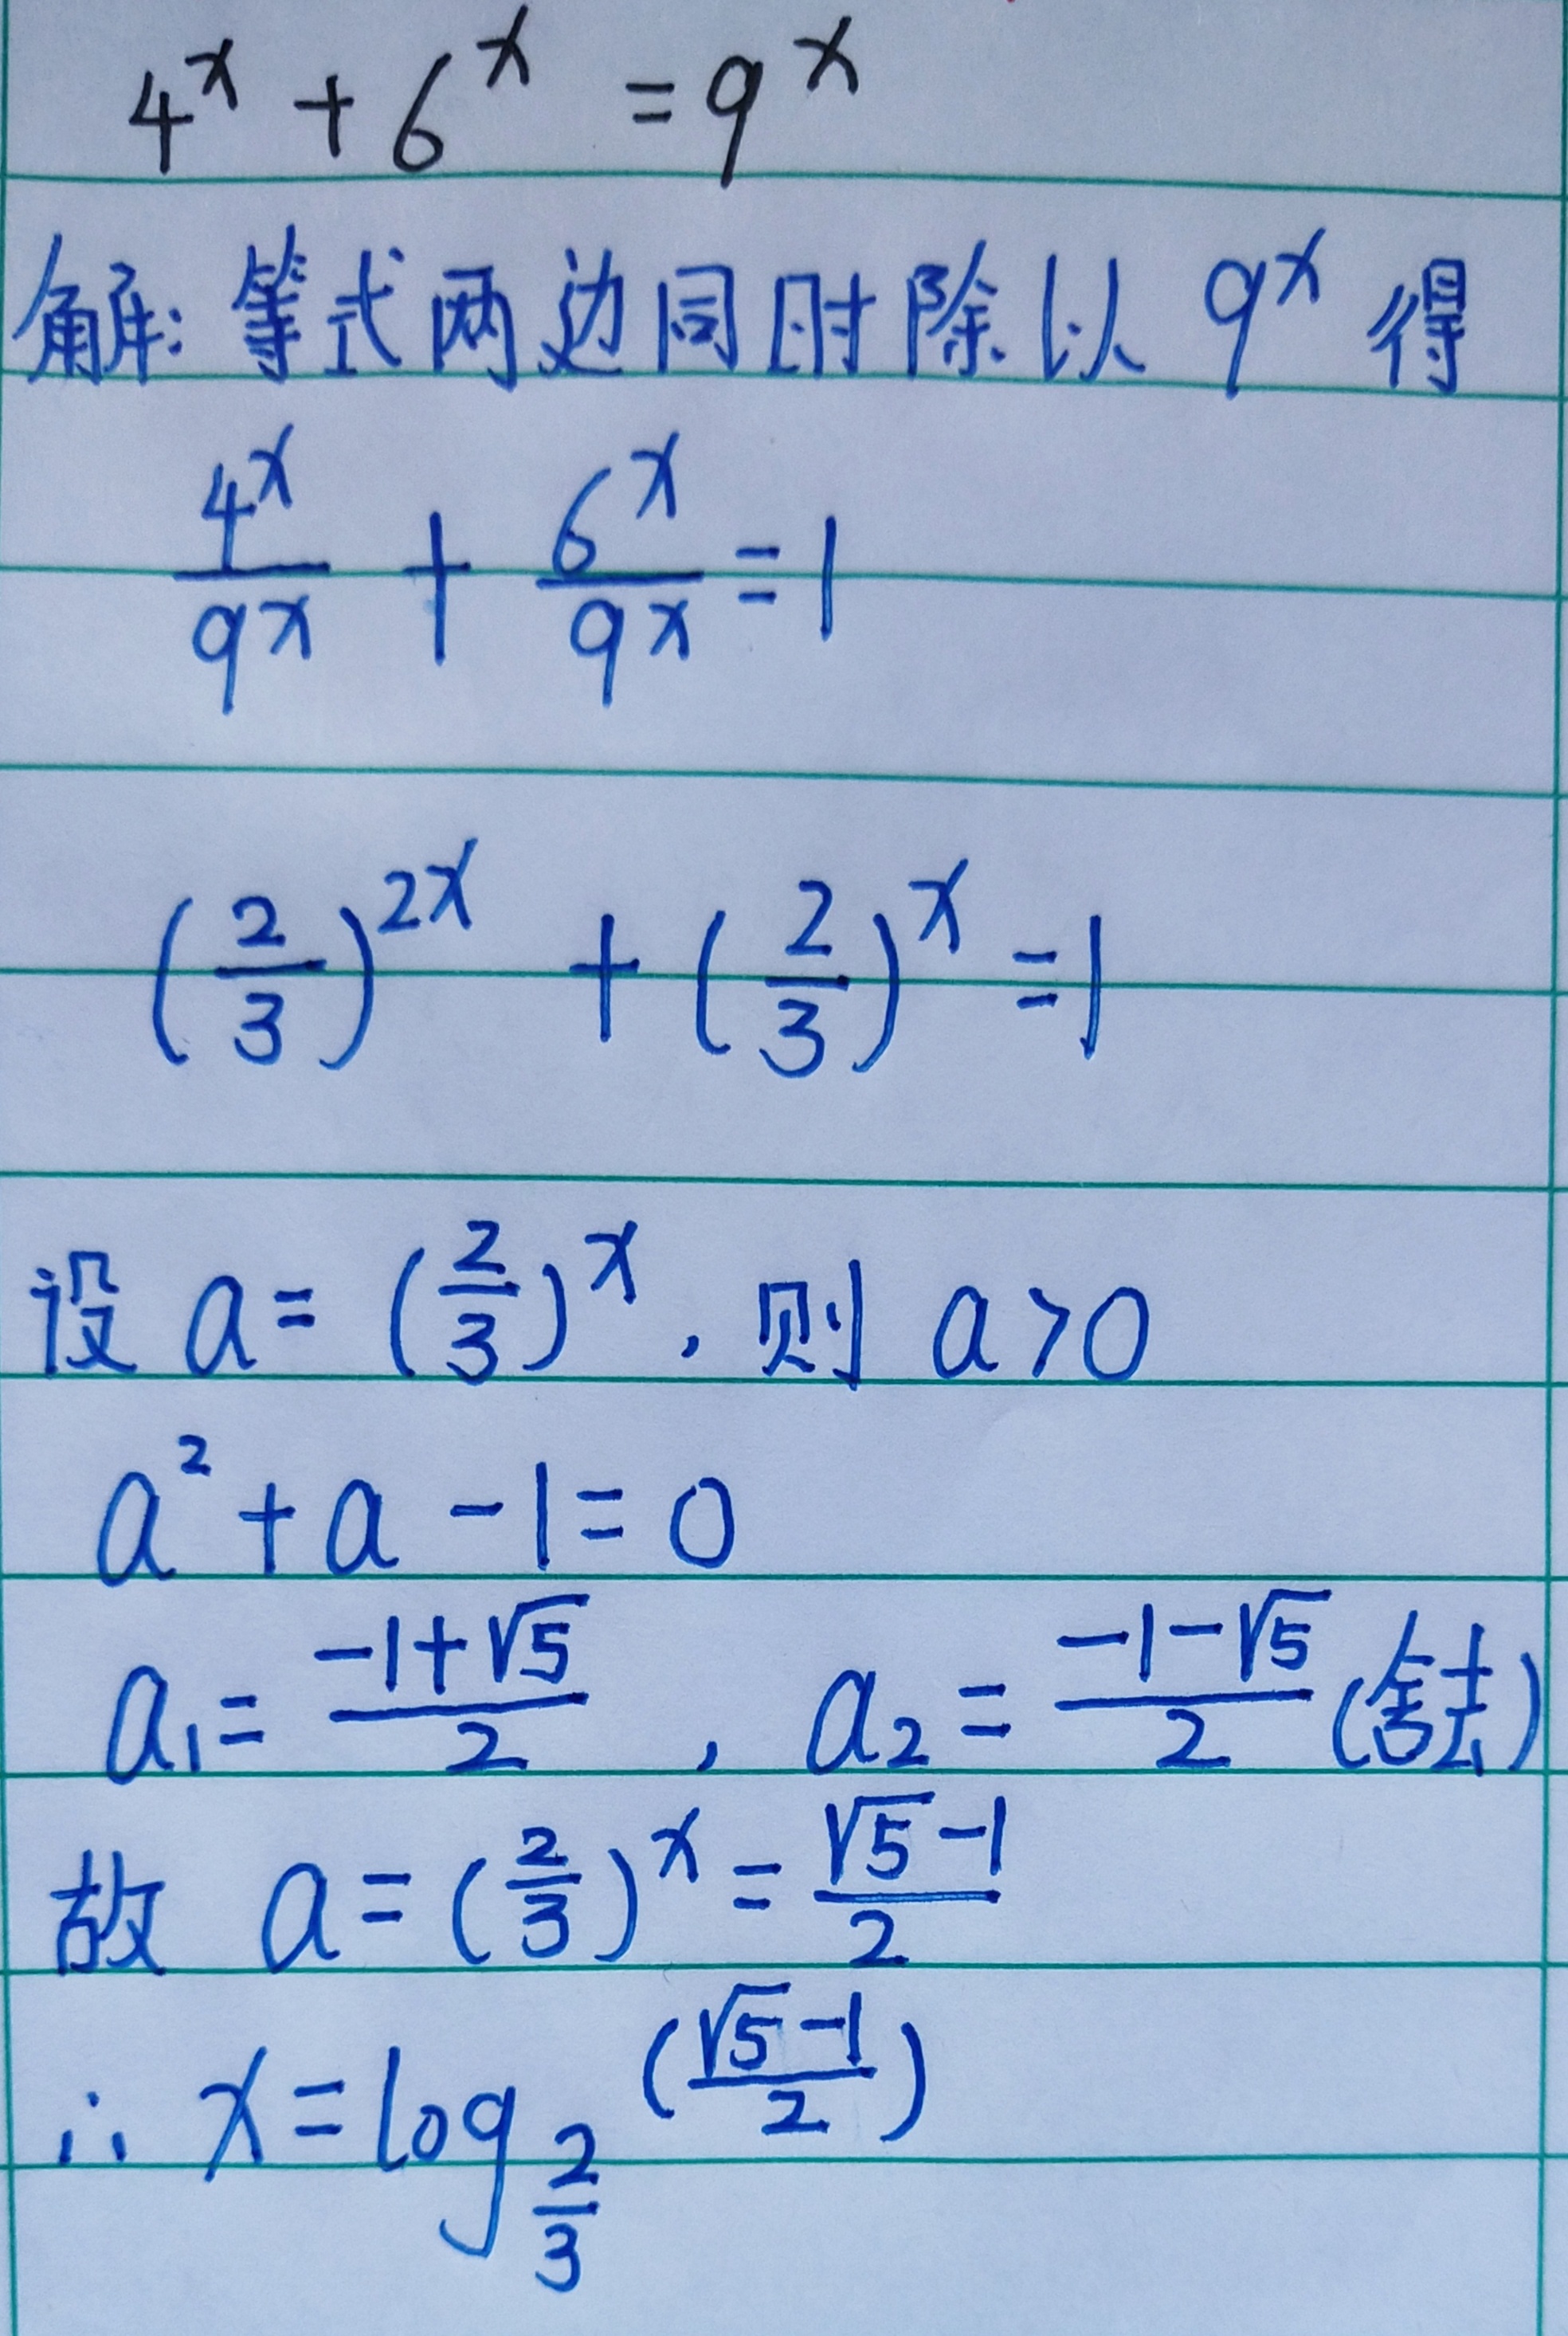 4^x + 6^x = 9^x
解: 等式两边同时除以 9^x 得
4^x/9^x + 6^x/9^x = 1
(2/3)^{2x} + (2/3)^x = 1
设 a = (2/3)^x, 则 a > 0
a² + a - 1 = 0
a₁ = (-1+√5)/2, a₂ = (-1-√5)/2 (舍去)
故 a = (2/3)^x = (√5-1)/2
∴ x = log_{2/3} ((√5-1)/2)